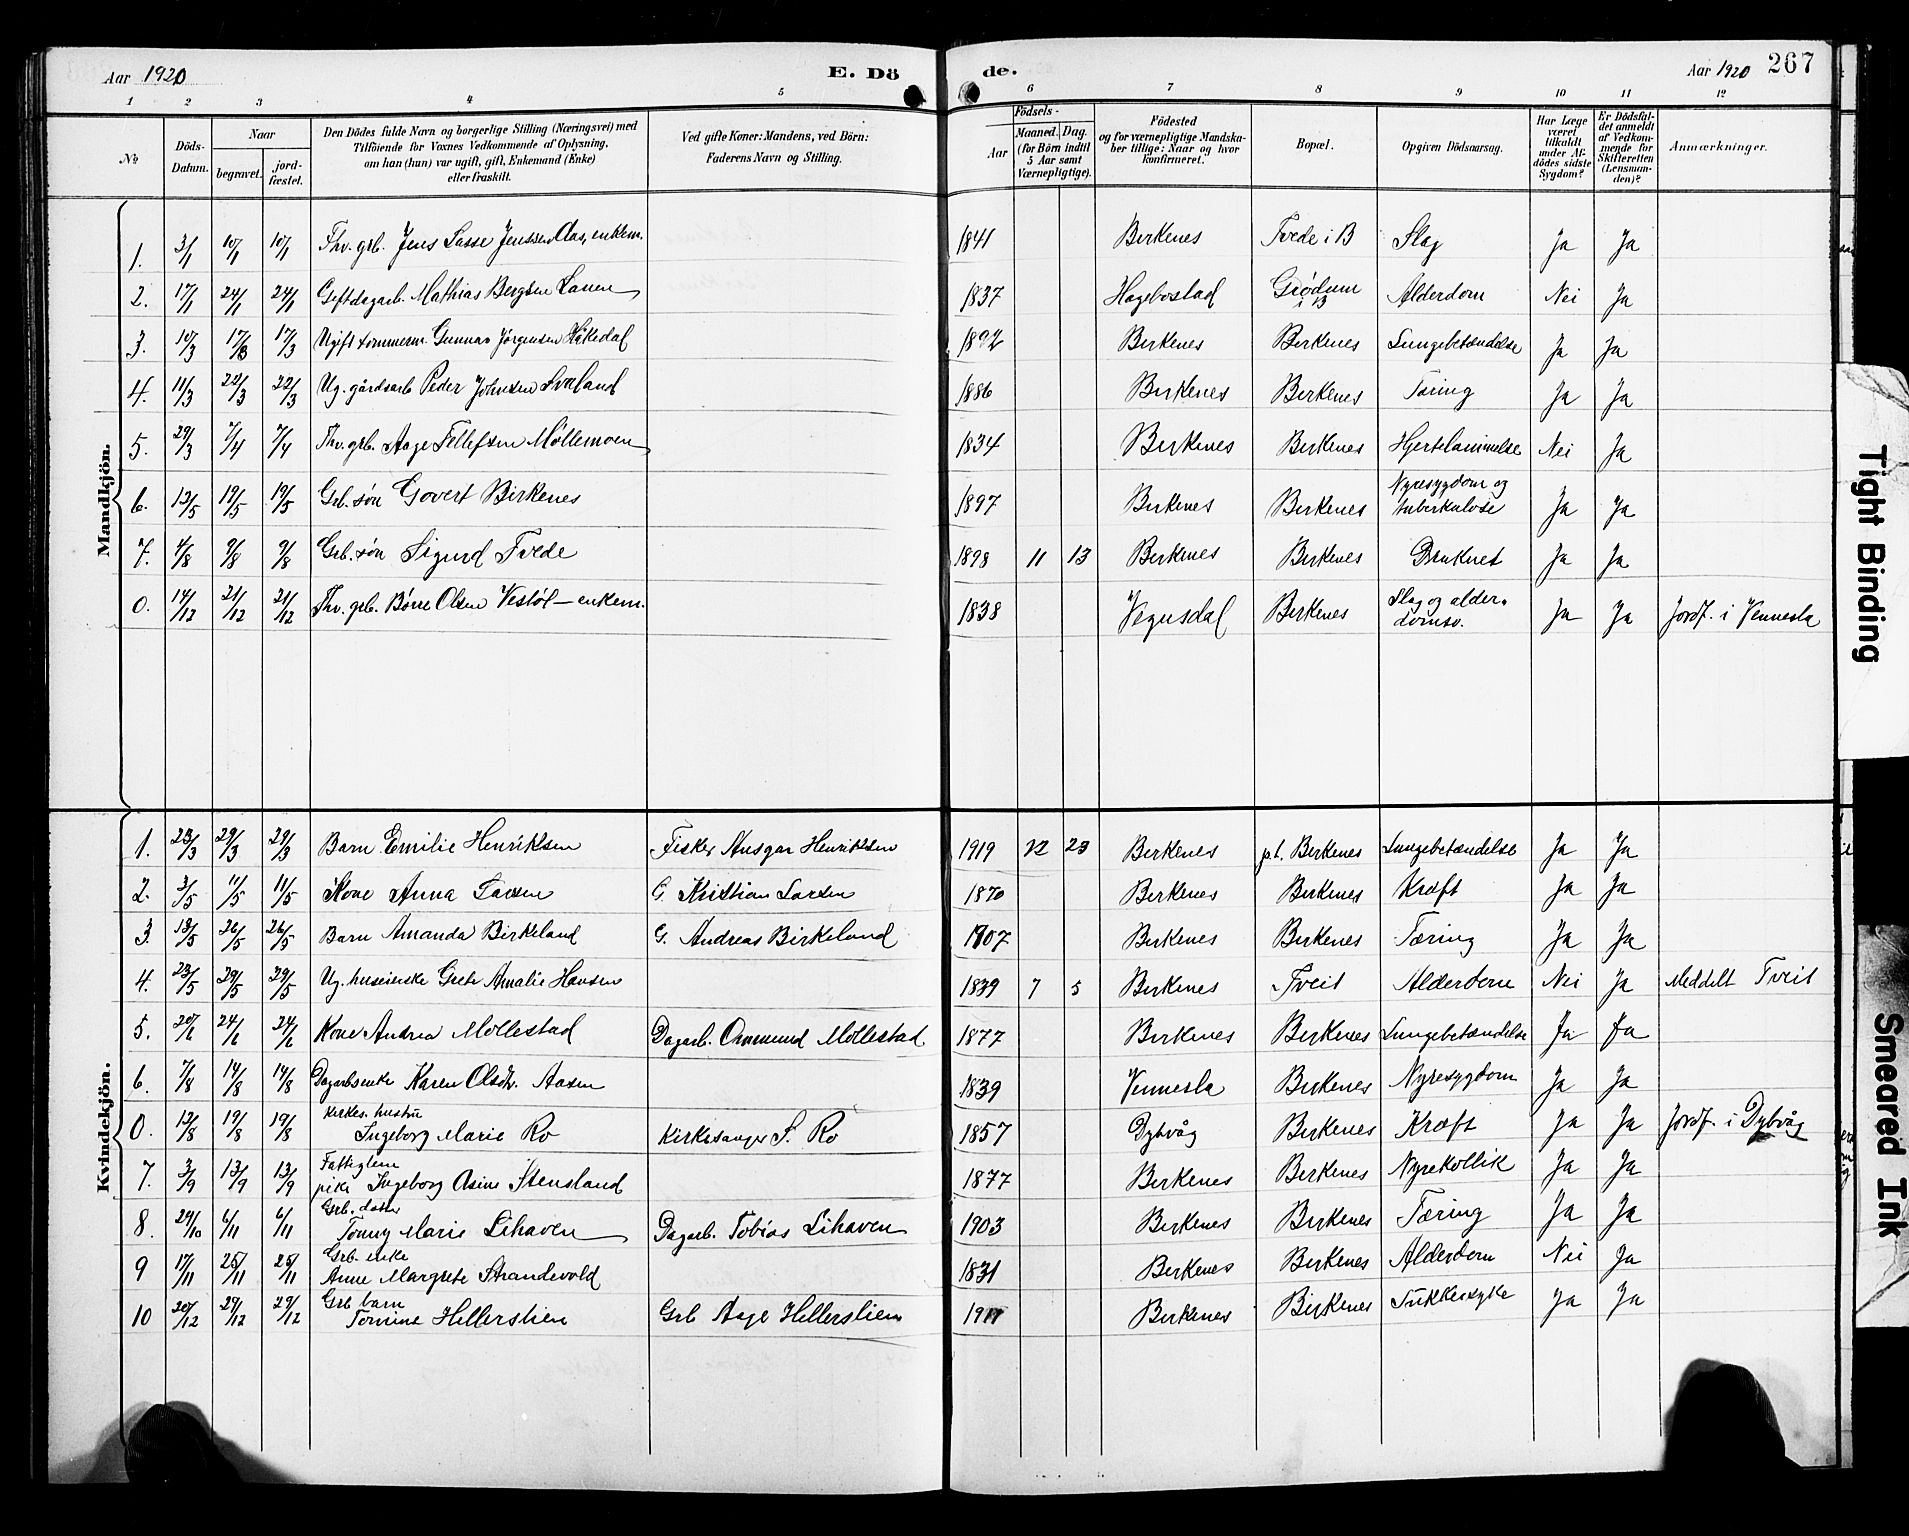 Aar 1920 E. Dö de. Aar 1920 267
1 2 3 4 5 6 7 8 9 10 11 12
№ Döds-Datum. Naar begravet. jord-fæstet. Den Dödes fulde Navn og borgerlige Stilling (Næringsvei) med Tilföiende for Voxnes Vedkommende af Oplysning, om han (hun) var ugift, gift, Enkemand (Enke) eller fraskilt. Ved gifte Koner: Mandens, ved Börn: Faderens Navn og Stilling. Födsels- Aar Maaned. Dag. (for Börn indtil 5 Aar samt Værnepligtige). Födested og for værnepligtige Mandskaber tillige: Naar og hvor konfirmeret. Bopæl. Opgiven Dödsaarsag. Har Læge været tilkaldt under Afdödes sidste Sygdom? Er Dödsfaldet anmeldt af Vedkommende for Skifteretten (Lensmanden)? Anmærkninger.
Mandkjön.
1. 3/1 10/1 10/1 Fhv. grb. Jens Lasse Jenssen Aas, enkem. 1841 Birkenes Tvede i B Slag Ja Ja
2. 17/1 24/1 24/1 Gift dagarb. Mathias Bergsen Lauen 1837 Hægebostad Grødum i B Alderdom Nei Ja
3. 10/3 17/3 17/3 Ugift tømmerm. Gunnar Jørgensen Håkedal 1892 Birkenes Birkenes Lungebetændelse Ja Ja
4. 11/3 22/3 22/3 Ug. gårdsarb Peder Johnsen Svaland 1886 Birkenes Birkenes Tæring Ja Ja
5. 29/3 7/4 7/4 Fhv. grb. Aage Tellefsen Møllemoen 1834 Birkenes Birkenes Hjertelammelse Nei Ja
6. 13/5 19/5 19/5 Grb. søn Govert Birkenes 1897 Birkenes Birkenes Nyresygdom og tuberkulose Ja Ja
7. 4/8 9/8 9/8 Grb. søn Sigurd Tvede 1898 11 13 Birkenes Birkenes Druknet Ja Ja
0. 14/12 21/12 21/12 Fhv. grb. Børre Olsen Vestøl – enkem. 1838 Vegusdal Birkenes Slag og alderdomsv. Ja Ja Jordf. i Vennesla
Kvindekjön.
1. 23/3 29/3 29/3 Barn Emilie Henriksen Fisker Ansgar Henriksen 1919 12 23 Birkenes p.t. Birkenes Lungebetændelse Ja Ja
2. 3/5 11/5 11/5 Kone Anna Larsen G. Kristian Larsen 1870 Birkenes Birkenes Kræft Ja Ja
3. 18/5 26/5 26/5 Barn Amanda Birkeland G. Andreas Birkeland 1907 Birkenes Birkenes Tæring Ja Ja
4. 23/5 29/5 29/5 Ug. huseierske Grete Amalie Hansen 1839 7 5 Birkenes Tveit Alderdom Nei Ja Meddelt Tveit
5. 20/6 24/6 24/6 Kone Andrea Mollestad Dagarb. Ommund Mollestad 1877 Birkenes Birkenes Lungebetændelse Ja Ja
6. 7/8 14/8 14/8 Dagarbs enke Karen Olsdtr. Aasen 1839 Vennesla Birkenes Nyresygdom Ja Ja
0. 13/8 19/8 19/8 Kirkes. hustru Ingeborg Marie Ro Kirkesanger S. Ro 1857 Dybvåg Birkenes Kræft Ja Ja Jordf. i Dybvåg
7. 3/9 13/9 13/9 Fattiglem pike Ingeborg Asine Stensland 1877 Birkenes Birkenes Nyrekollik Ja Ja
8. 29/10 6/11 6/11 Grb. dater Tonny Marie Lihaven Dagarb. Tobias Lihaven 1903 Birkenes Birkenes Tæring Ja Ja
9 17/11 25/11 25/11 Grb. enke Anne Margrete Strandevold 1831 Birkenes Birkenes Alderdom Nei Ja
10 20/12 29/12 29/12 Grb barn Tomine Hellerslien Grb Aage Hellerslien Birkenes Birkenes Sukkersyke Ja Ja
Tight Binding
Smeared Ink